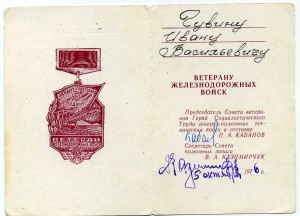 ВЕТЕРАН
Чувину
Ивану
Васильевичу
ВЕТЕРАНУ
ЖЕЛЕЗНОДОРОЖНЫХ
ВОЙСК
Председатель Совета ветера-
нов Герой Социалистического
Труда генерал-полковник тех-
нических войск в отставке
П. А. КАБАНОВ
Секретарь Совета
полковник запаса
В. А. КАЗИМИРЧУК
5 октября 1976